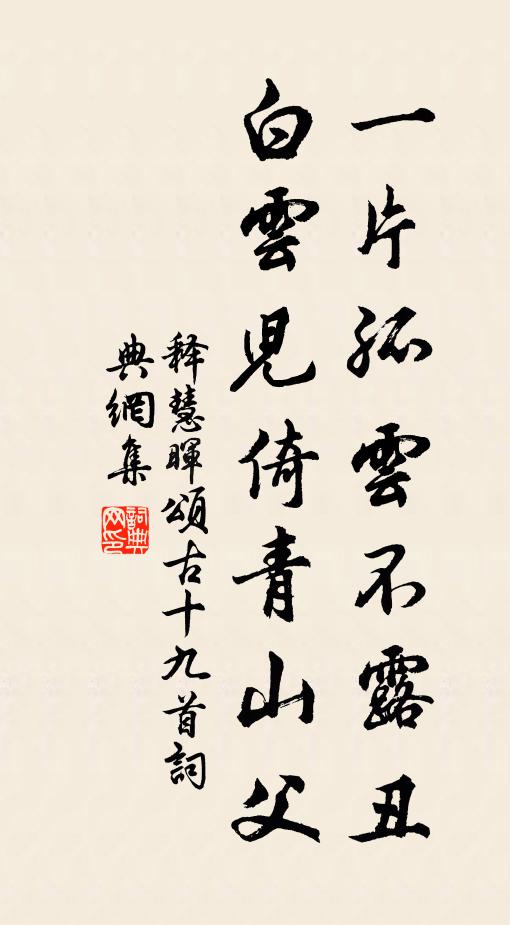 一片孤雲不露丑
白雲児倚青山父
释慧暉頌古十九首詞
典網集
詞典网印